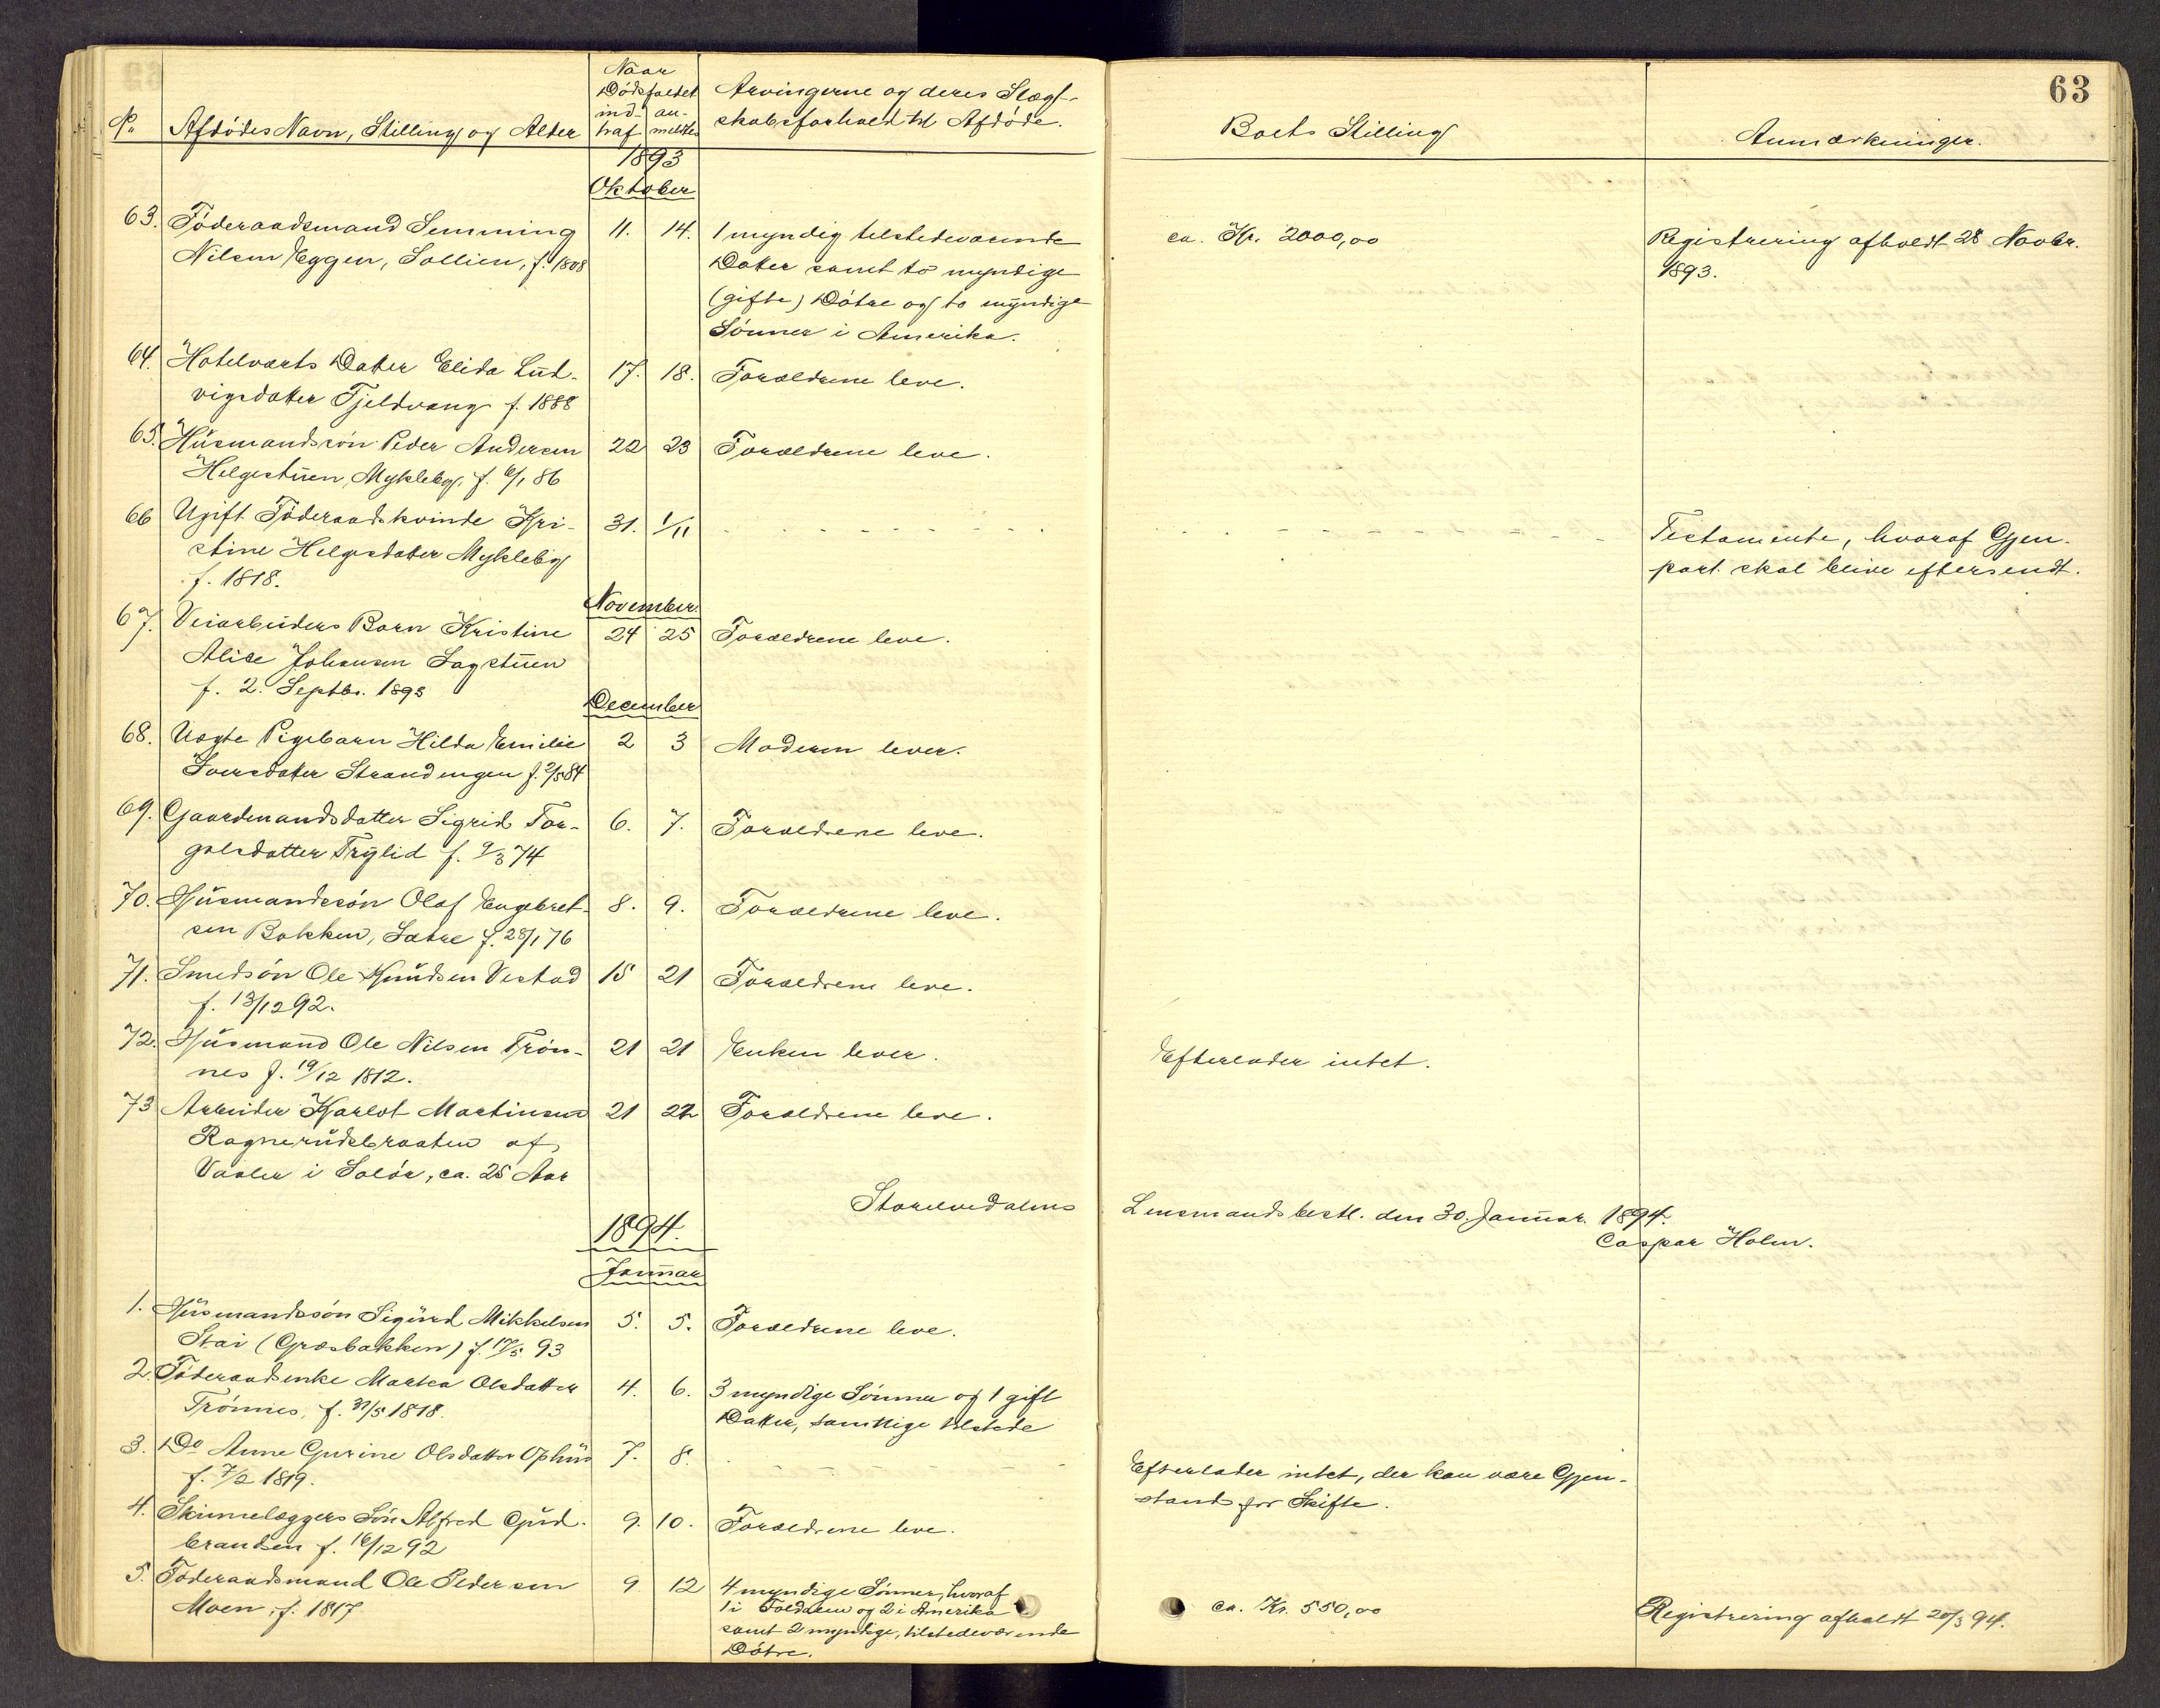 63
Naar
Dødsfaldet
ind- an-
traf meldtes
Arvingerne og deres Slægt-
skabsforhold til Afdøde.
No. Afdødes Navn, Stilling og Alder
Boets Stilling
Anmærkninger.
1893
Oktober
63. Föderaadsmand Semming 11. 14. 1 myndig tilstedeværende ca. Kr. 2000,00 Registrering afholdt 28 Novbr.
Nilsen Eggen, Sollien, f. 1808 Datter samt to myndige 1893.
(gifte) Døtre og to myndige
Sönner i Amerika.
64. Hotelværts Datter Elida Lud- 17. 18. Forældrene leve.
vigsdatter Fjeldvang f. 1888
65. Husmandssön Peder Andersen 22 23 Forældrene leve.
Helgestuen, Mykleby, f. 6/1 86
66 Ugift Föderaadskvinde Kri- 31. 1/11 - - - - - - Testamente, hvoraf Gjen-
stine Helgesdatter Mykleby part skal blive eftersendt.
f. 1818.
November.
67. Veiarbeiders Barn Kristine 24 25 Forældrene leve.
Alise Johansen Sagstuen
f. 2. Septbr. 1893
December
68. Uægte Pigebarn Hilda Emilie 2 3 Moderen lever.
Iversdatter Strandengen f. 2/5 84
69. Gaardmandsdatter Sigrid Tor- 6. 7. Forældrene leve.
galsdatter Trylid f. 9/3 74
70. Husmandssön Olaf Engebret- 8. 9. Forældrene leve.
sen Bakken, Sætre f. 28/1 76
71. Smedsön Ole Knudsen Vestad 15 21 Forældrene leve.
f. 13/12 92.
72. Husmand Ole Nilsen Trön- 21 21 Enken lever. Efterlader intet.
nes f. 19/12 1812.
73 Arbeider Karlot Martinsen 21 22 Forældrene leve.
Ragnerudsbraaten af
Vaaler i Solör, ca. 25 Aar
Storelvedalens Lensmandsbestl. den 30. Januar. 1894.
Caspar Holm.
1894.
Januar
1. Husmandssön Sigurd Mikkelsen 5. 5. Forældrene leve.
Stai (Græsbakken) f. 17/5 93
2. Föderaadsenke Martea Olsdatter 4. 6. 3 myndige Sönner og 1 gift
Trönnes, f. 31/5 1818. Datter, samtlige tilstede
3. Do Anne Gurine Olsdatter Ophus 7. 8. - - - - - - Efterlader intet, der kan være Gjen-
f. 7/2 1819. stand for Skifte.
4. Skinnelæggers Sön Alfred Gud- 9. 10. Forældrene leve.
brandsen f. 16/12 92
5. Föderaadsmand Ole Pedersen 9 12 4 myndige Sönner, hvoraf ca. Kr. 550,00 Registrering afholdt 20/3 94.
Moen, f. 1817 1 i Foldalen og 2 i Amerika
samt 2 myndige, tilstedeværende
Dötre.